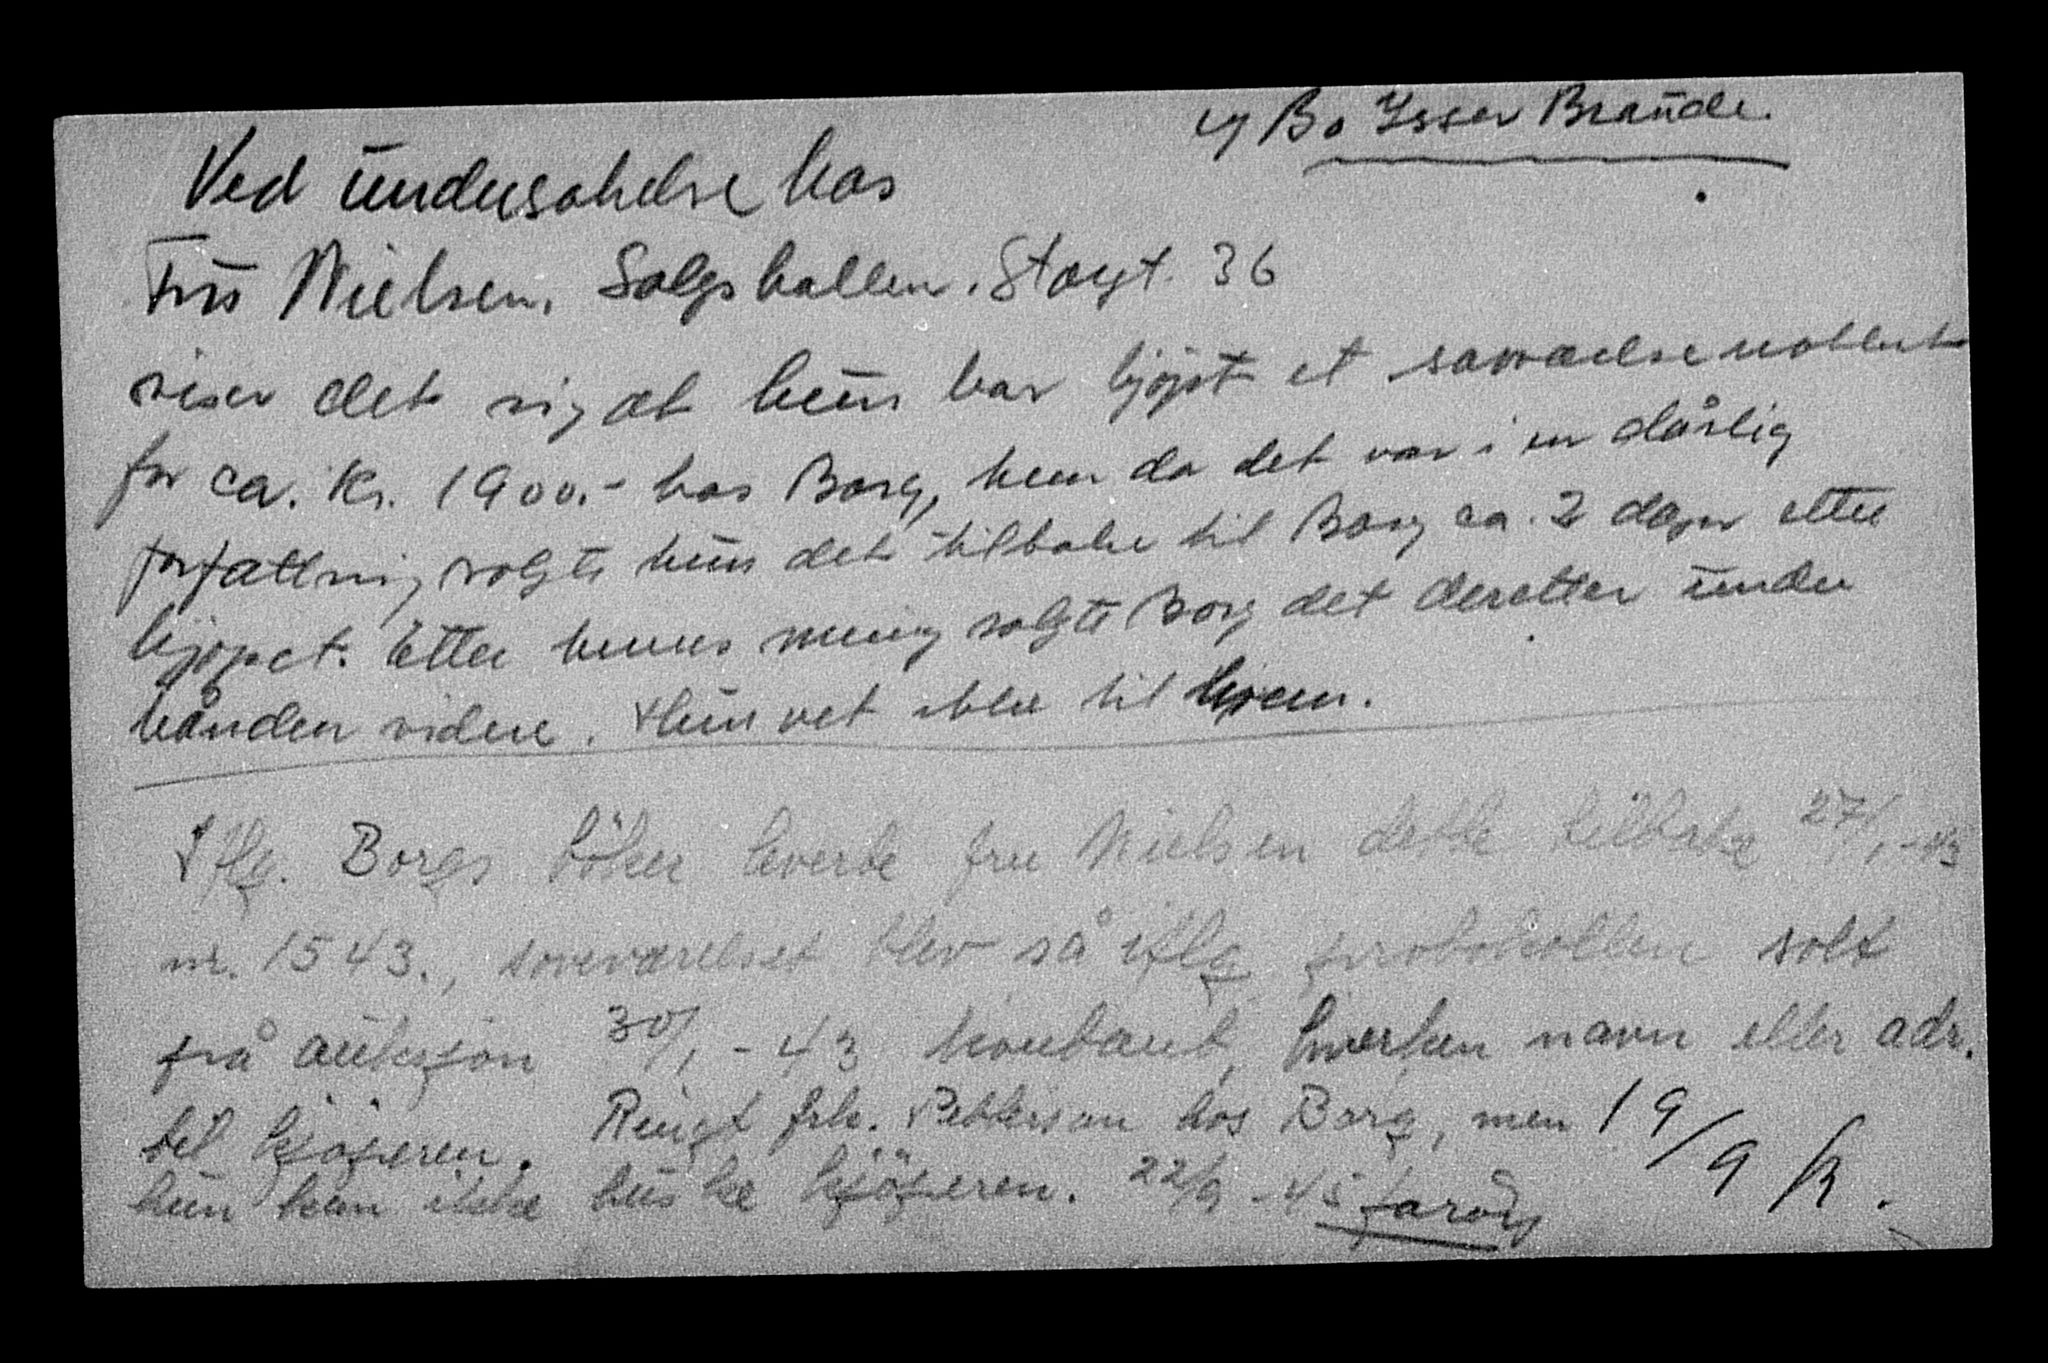 Bo Isser Braude.
Ved undersøkelse hos
Fru Nielsen, Salgshallen. Storgt. 36
viser det sig at hun har kjøpt et soveværelsemøblent
for ca. kr. 1900.- hos Borg, men da det var i en dårlig
forfatning solgte hun det tilbake til Borg ca. 2 dager etter
kjøpet. Etter hennes mening solgte Borg det deretter under
hånden videre. Hun vet ikke til hvem.
Iflg. Borgs böker leverte fru Nielsen dette tilbake 27/1-43
nr. 1543., soveværelset blev så iflg protokollen solt
på auksjon 30/1-43 kontant, hverken navn eller adr.
til kjøperen. Ringt frk. Pettersen hos Borg, men
hun kan ikke huske kjöperen. 22/9-45
19/9 K.